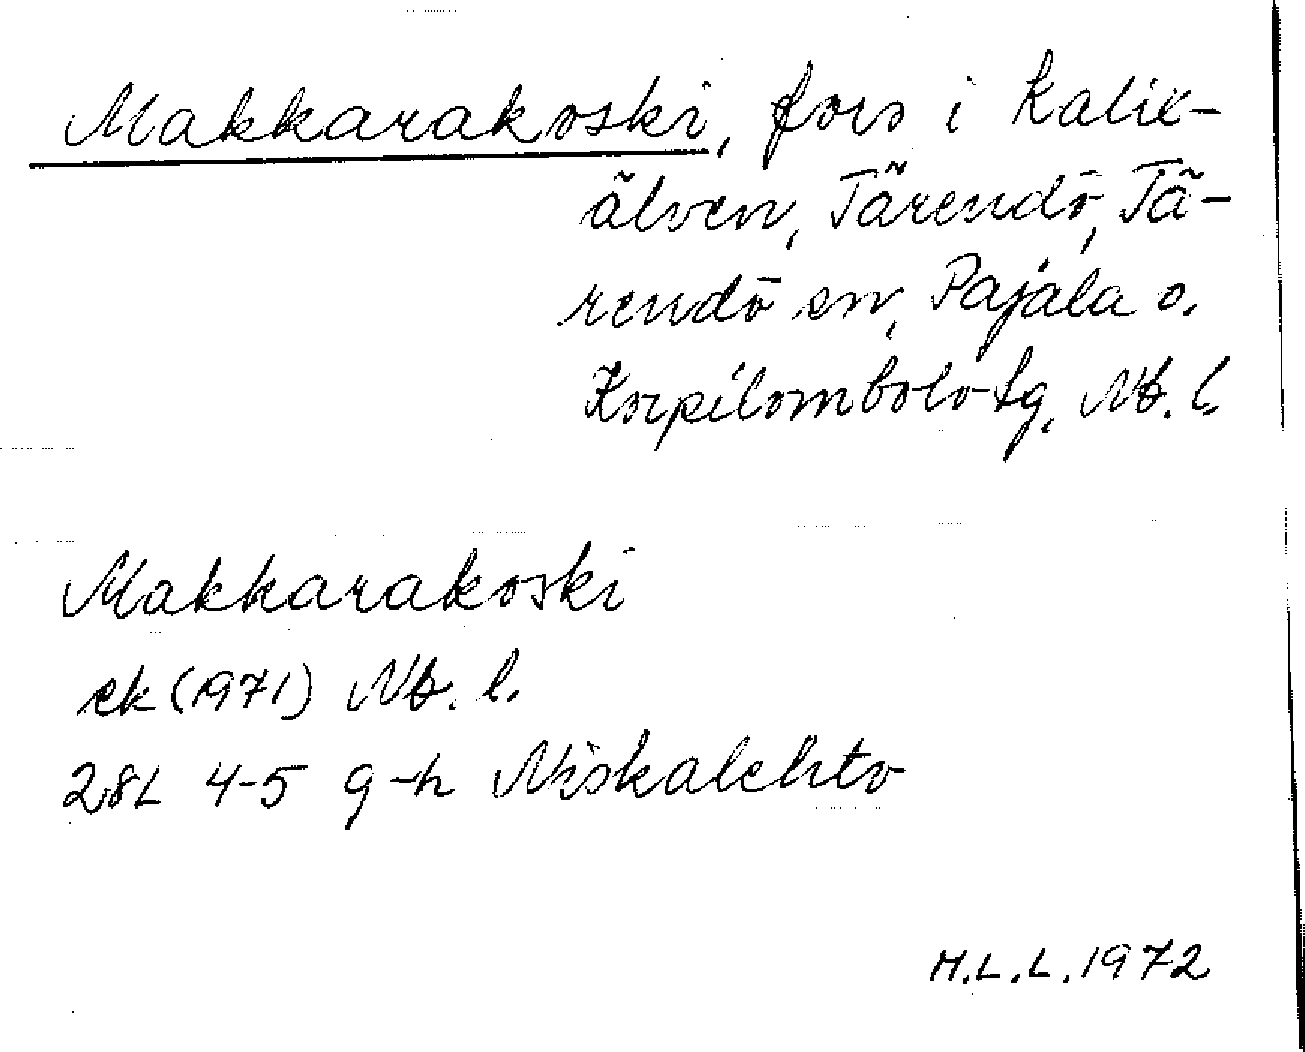 Makkarakoski, fors i Kalix-
älven, Tärendö, Tä-
rendö sn, Pajala o.
Korpilombolo tg, Nb. l.
Makkarakoski
ek (1971) Nb. l.
28L 4-5 g-h Niskalehto
M.L.L. 1972